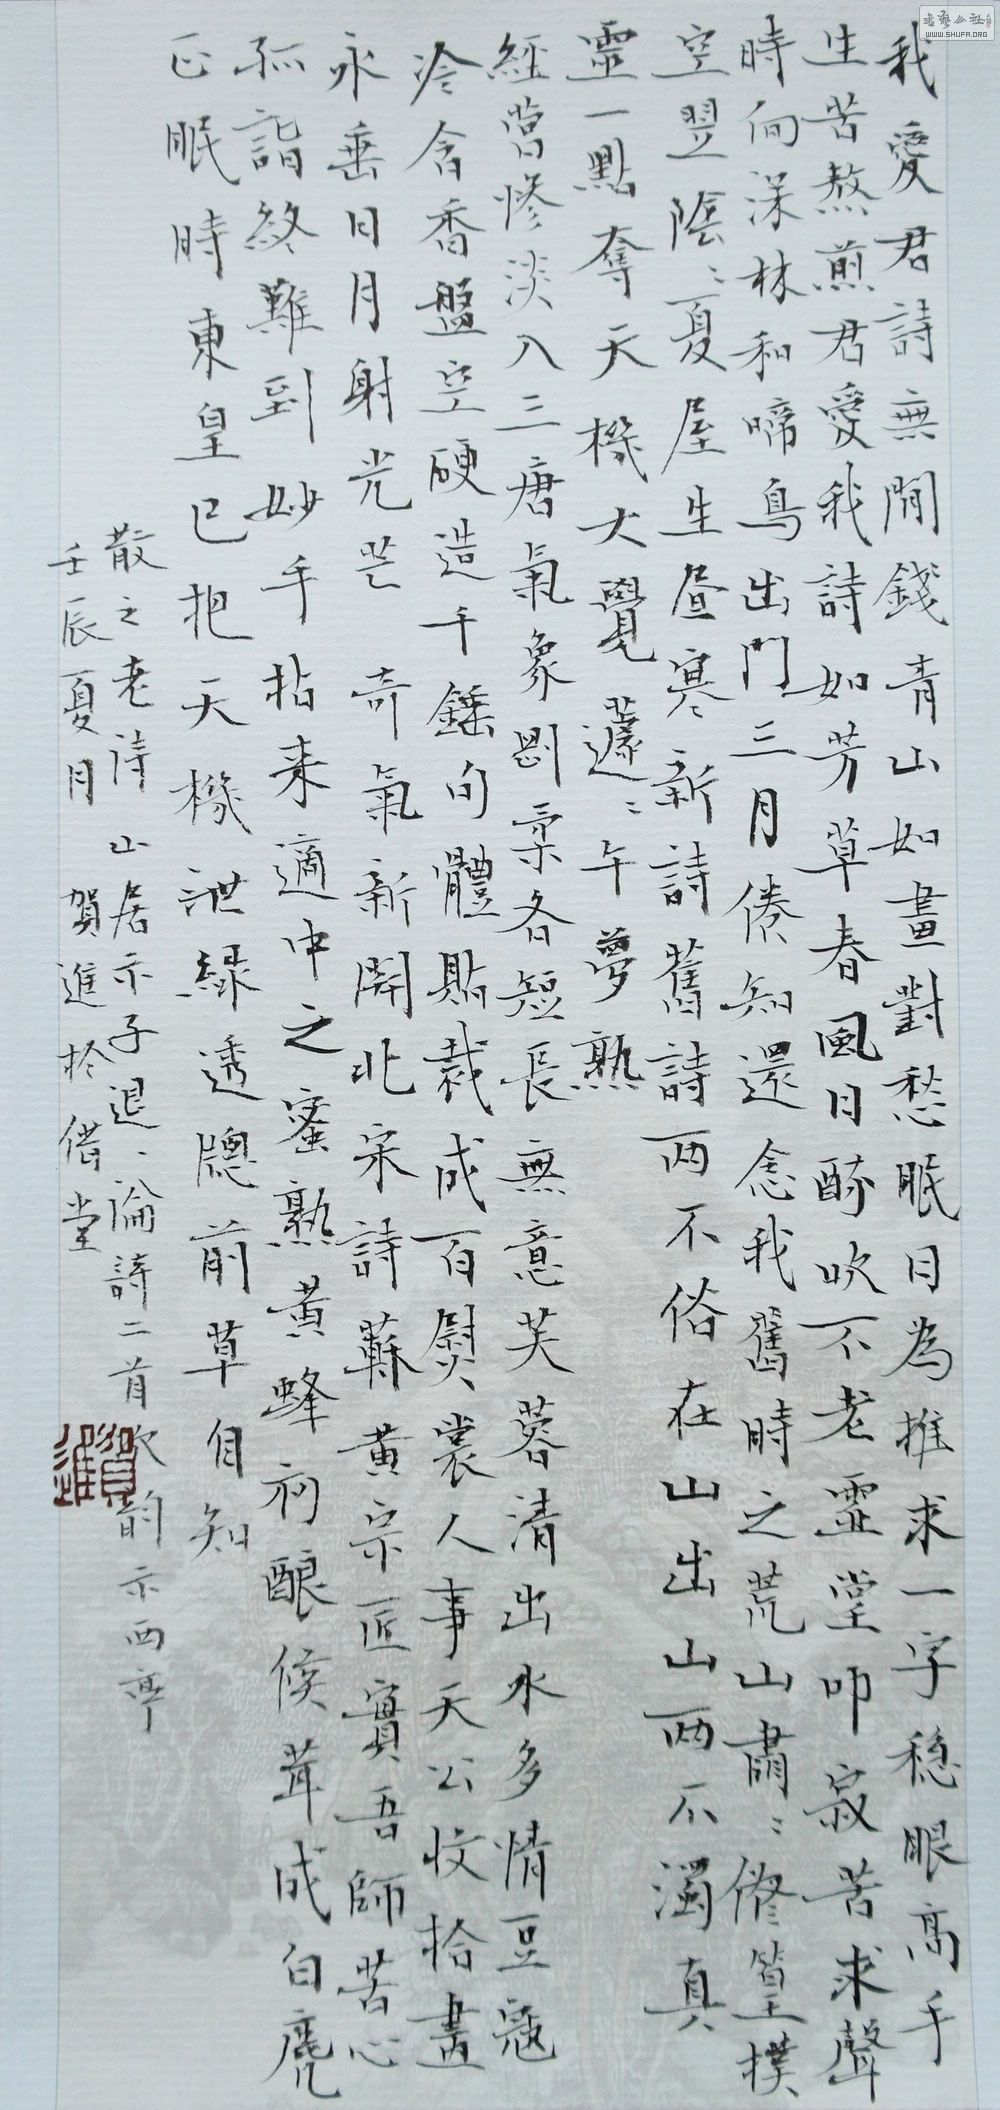 我愛君詩無閒錢青山如畫對愁眠日為推求一字穩眼高手
生苦熬煎君愛我詩如芳草春風日酥吹不老靈堂叩寂苦求聲
時向深林和啼鳥出門三月倦知還念我舊時之荒山肅〻修篁撲
空翌陰〻夏屋生晝寒新詩舊詩兩不俗在山出山兩不濁真
靈一點奪天機大覺蘧〻午夢熟
經營慘淡入三唐氣象剛柔各短長無意芙蓉清出水多情豆蔻
冷含香盤空硬造千錘句體貼裁成百熨裳人事天公收拾盡
永垂日月射光芒奇氣新開北宋詩蘇黃宗匠實吾師苦心
孤詣終難到妙手拈來適中之蜜熟黃蜂初釀候茸成白麂
正眠時東皇已把天機泄綠透牕前草自知
散之老詩山居示子退、論詩二首次韵示西亭
壬辰夏月賀進於借堂
賀進
書藝公社
WWW.SHUFA.ORG